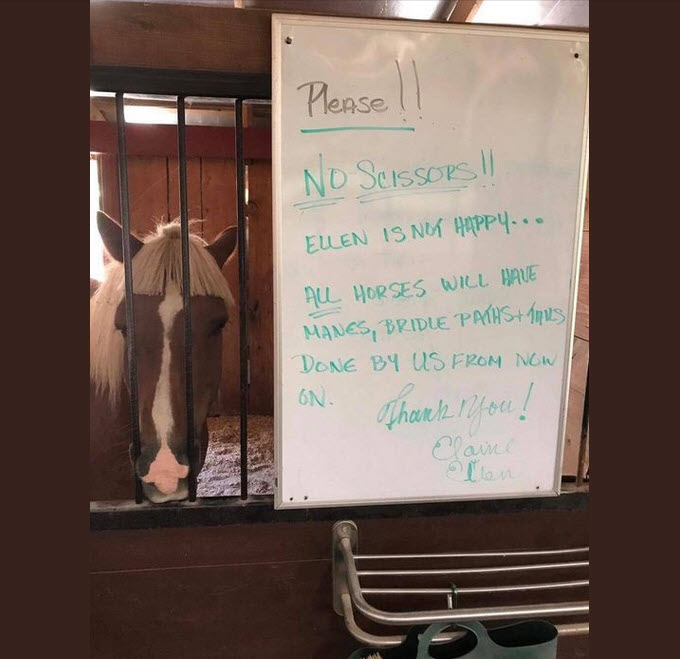 Please!!
NO SCISSORS!!
ELLEN IS NOT HAPPY...
ALL HORSES WILL HAVE
MANES, BRIDLE PATHS + TAILS
DONE BY US FROM NOW
ON.
Thank You!
Elaine
Ellen